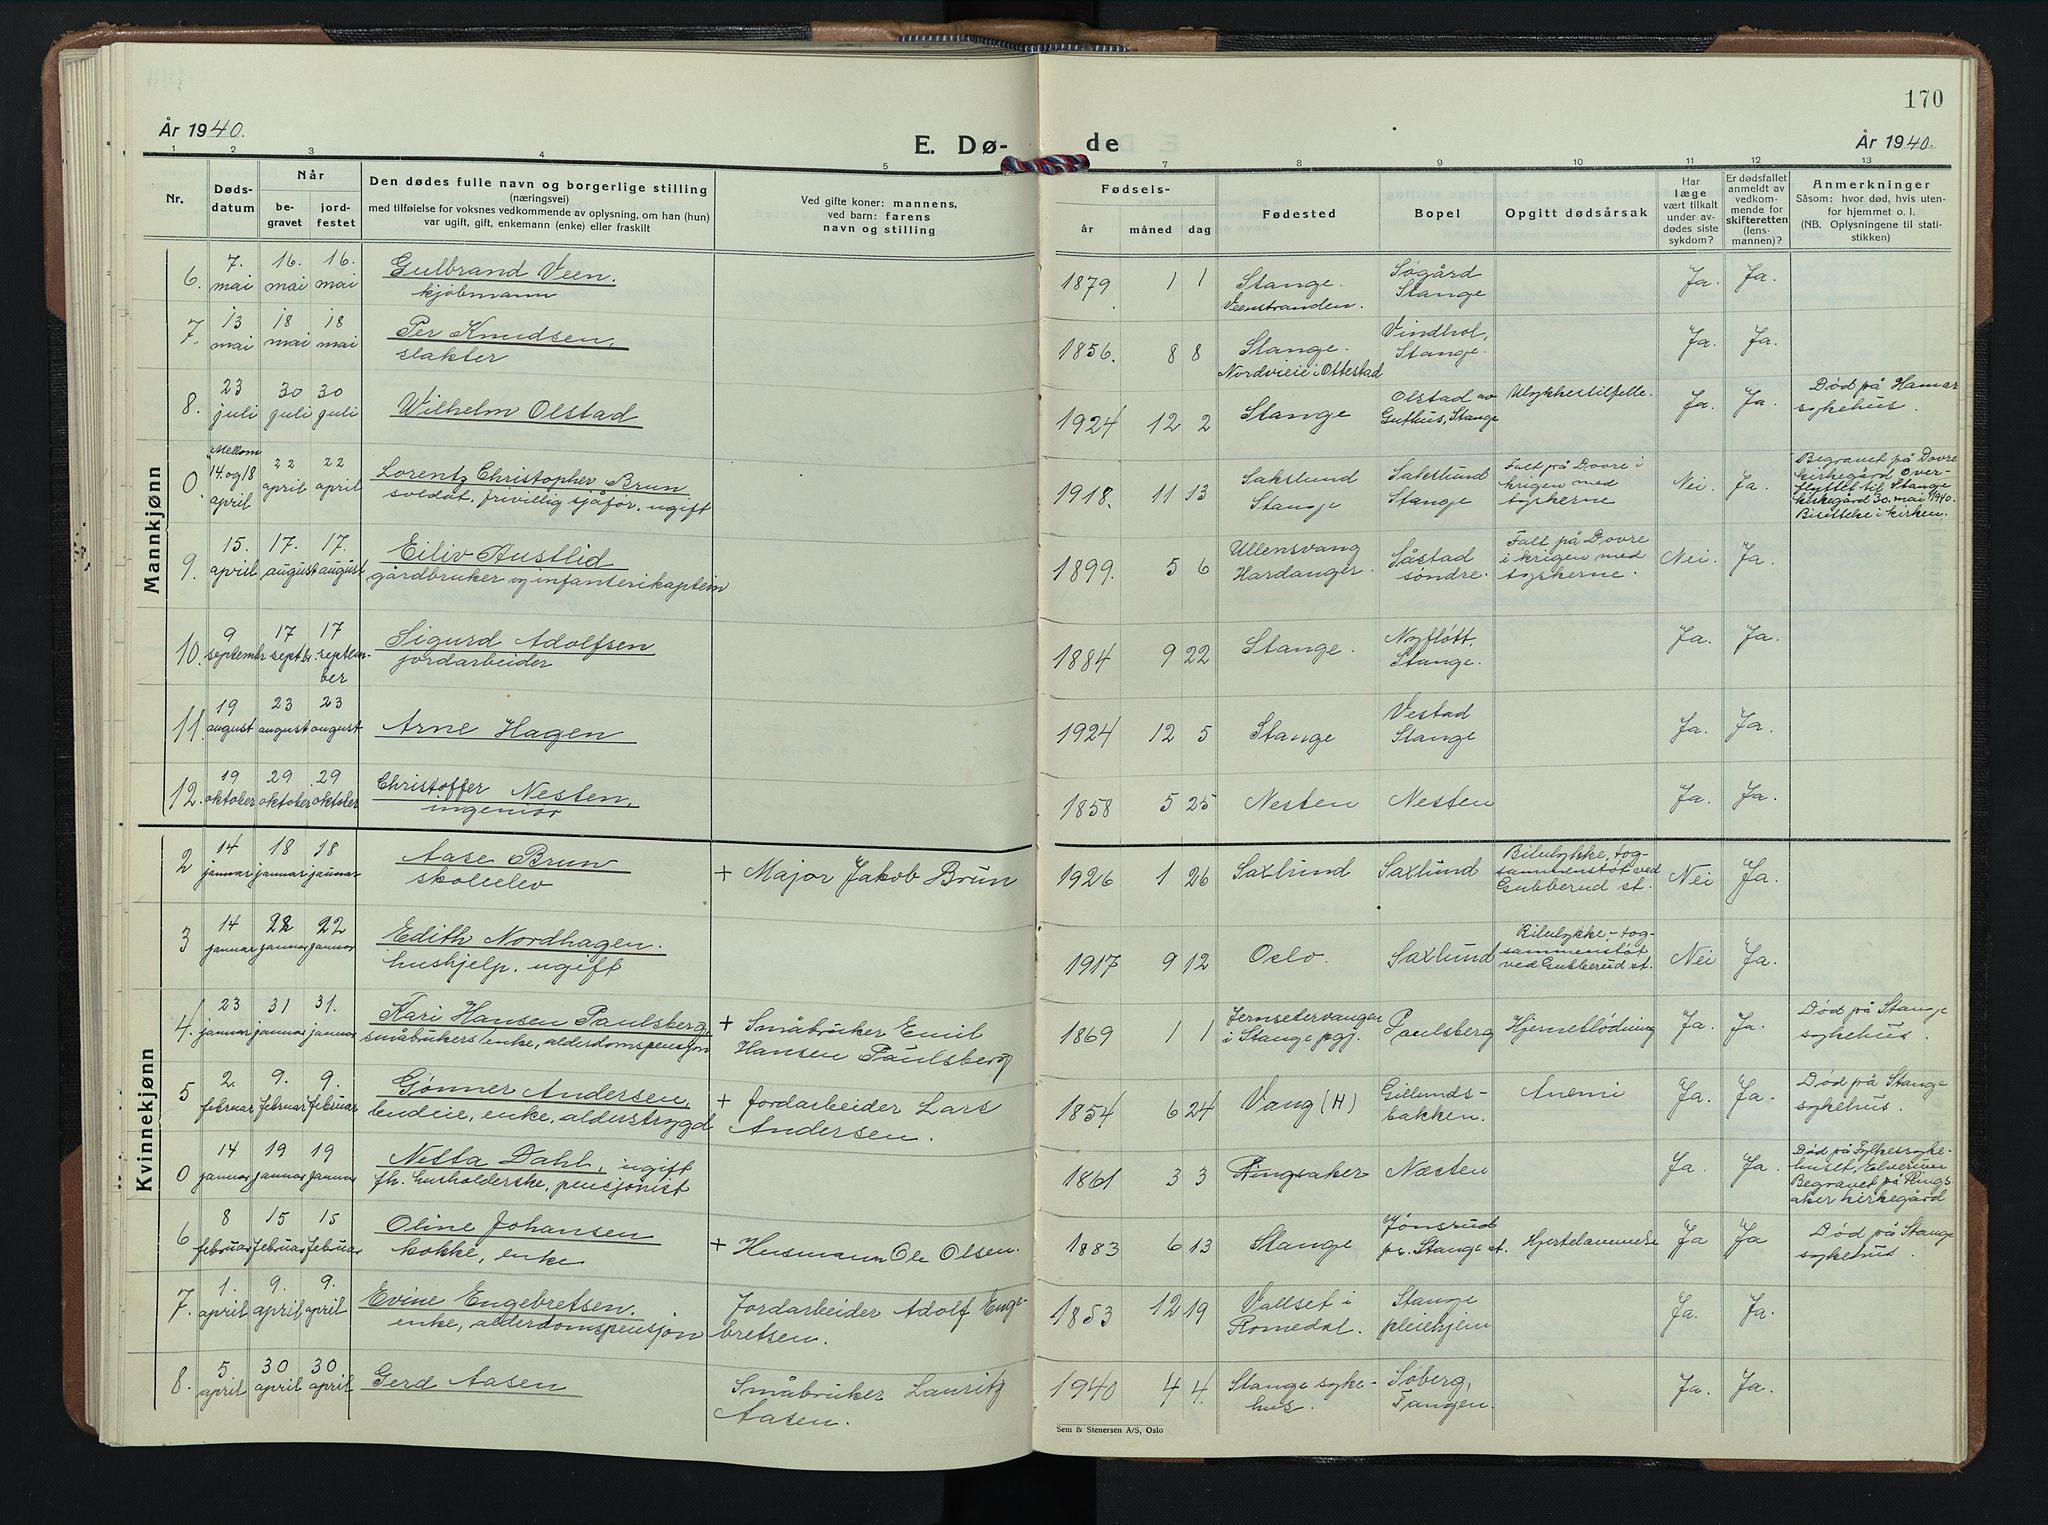 170
År 1940.
E. Dø-
de
År 1940.
1 2 3 4 5 7 8 9 10 11 12 13
Nr.
Døds-
datum
Når
be-
gravet
jord-
festet
Den dødes fulle navn og borgerlige stilling
(næringsvei)
med tilføielse for voksnes vedkommende av oplysning, om han (hun)
var ugift, gift, enkemann (enke) eller fraskilt
Ved gifte koner: mannens,
ved barn: farens
navn og stilling
Fødsels-
år måned dag
Fødested
Bopel
Opgitt dødsårsak
Har
læge
vært tilkalt
under av-
dødes siste
sykdom?
Er dødsfallet
anmeldt av
vedkom-
mende for
skifteretten
(lens-
mannen)?
Anmerkninger
Såsom: hvor død, hvis uten-
for hjemmet o. l.
(NB. Oplysningene til stati-
stikken)
Mannkjønn
6. 7. mai 16. mai 16. mai Gulbrand Veen.
kjøbmann
1879 1 1 Stange.
Veenstranden.
Søgård
Stange
Ja. Ja.
7. 13 mai 18 mai 18 mai Per Knudsen,
slakter
1856. 8 8 Stange.
Nordveie i Ottestad
Vindhol,
Stange.
Ja. Ja.
8. 23 juli 30 juli 30 juli Wilhelm Olstad
1924 12 2 Stange
Olstad av
Guthus, Stange
Ulykkestilfelle.
Ja. Ja.
Død på Hamar
sykehus.
0. Mellom
14. og 18
april
22 april 22 april Lorentz Christopher Brun
soldat, frivillig sjåfør, ugift
1918. 11 13 Sakslund
Stange
Sakslund
Stange
Falt på Dovre i
krigen med
tyskerne
Nei. Ja.
Begravet på Dovre
kirkegård Over-
flyttet til Stange
kirkegård 30. mai 1940.
Bisettelse i kirken.
9. 15. april 17. august 17. august Eiliv Austlid
gårdbruker og infanterikaptein
1899. 5 6 Ullensvang
Hardanger.
Såstad
søndre.
Falt på Dovre
i krigen med
tyskerne.
Nei. Ja.
10. 9 september 17 septbr. 17 septem-
ber
Sigurd Adolfsen
jordarbeider
1884 9 22 Stange.
Nyfløtt,
Stange.
Ja. Ja.
11. 19 august 23 august 23 august Arne Hagen
1924 12 5 Stange
Vestad
Stange
Ja. Ja.
12. 19 oktober 29 oktober 29 oktober Christoffer Nesten,
ingeniør
1858 5 25 Nesten Nesten Ja. Ja.
Kvinnekjønn
2 14 januar 18 januar 18 januar Aase Brun
skoleelev
+ Major Jakob Brun
1926 1 26 Saxlund Saxlund
Bilulykke, tog-
sammenstøt ved
Gubberud st.
Nei Ja.
3 14 januar 22 januar 22 januar Edith Nordhagen.
hushjelp. ugift
1917 9 12 Oslo. Saxlund
Bilulykke,- tog-
sammenstøt
ved Gubberud st.
Nei Ja.
4. 23 januar 31 januar 31. januar Kari Hansen Paulsberg,
småbrukers enke, alderdomspensjon
+ Småbruker Emil
Hansen Paulsberg
1869 1 1 Jernsetervangen
i Stange pgj.
Paulsberg Hjerneblødning Ja. Ja.
Død på Stange
sykehus.
5 2. februar 9. februar 9. februar Gønner Andersen,
bendeie, enke, alderstrygd
+ Jordarbeider Lars
Andersen.
1854 6 24 Vang (H)
Gillunds-
bakken.
Anemi Ja. Ja.
Død på Stange
sykehus.
0 14 januar 19 januar 19 januar Netta Dahl, ugift
fh. husholderske, pensjonist
1861 3 3 Ringsaker Næsten Ja. Ja.
Død på Fylkessyke-
huset, Elverum
Begravet på Rings-
aker kirkegård
6 8 februar 15 februar 15 februar Oline Johansen
kokke, enke
+ Husmann Ole Olsen.
1883 6 13 Stange
Jønsrud
pr. Stange st.
Hjertelammelse Ja Ja
Død på Stange
sykehus.
7. 1. april 9. april 9. april Evine Engebretsen.
enke, alderdomspensjon
Jordarbeider Adolf Enge-
bretsen.
1853 12 19 Vallset i
Romedal.
Stange
pleiehjem
Ja. Ja.
8. 5 april 30 april 30 april Gerd Aasen
Småbruker Lauritz
Aasen.
1940 4 4. Stange syke-
hus.
Søberg,
Tangen.
Ja. Ja.
Sem & Stenersen A/S, Oslo